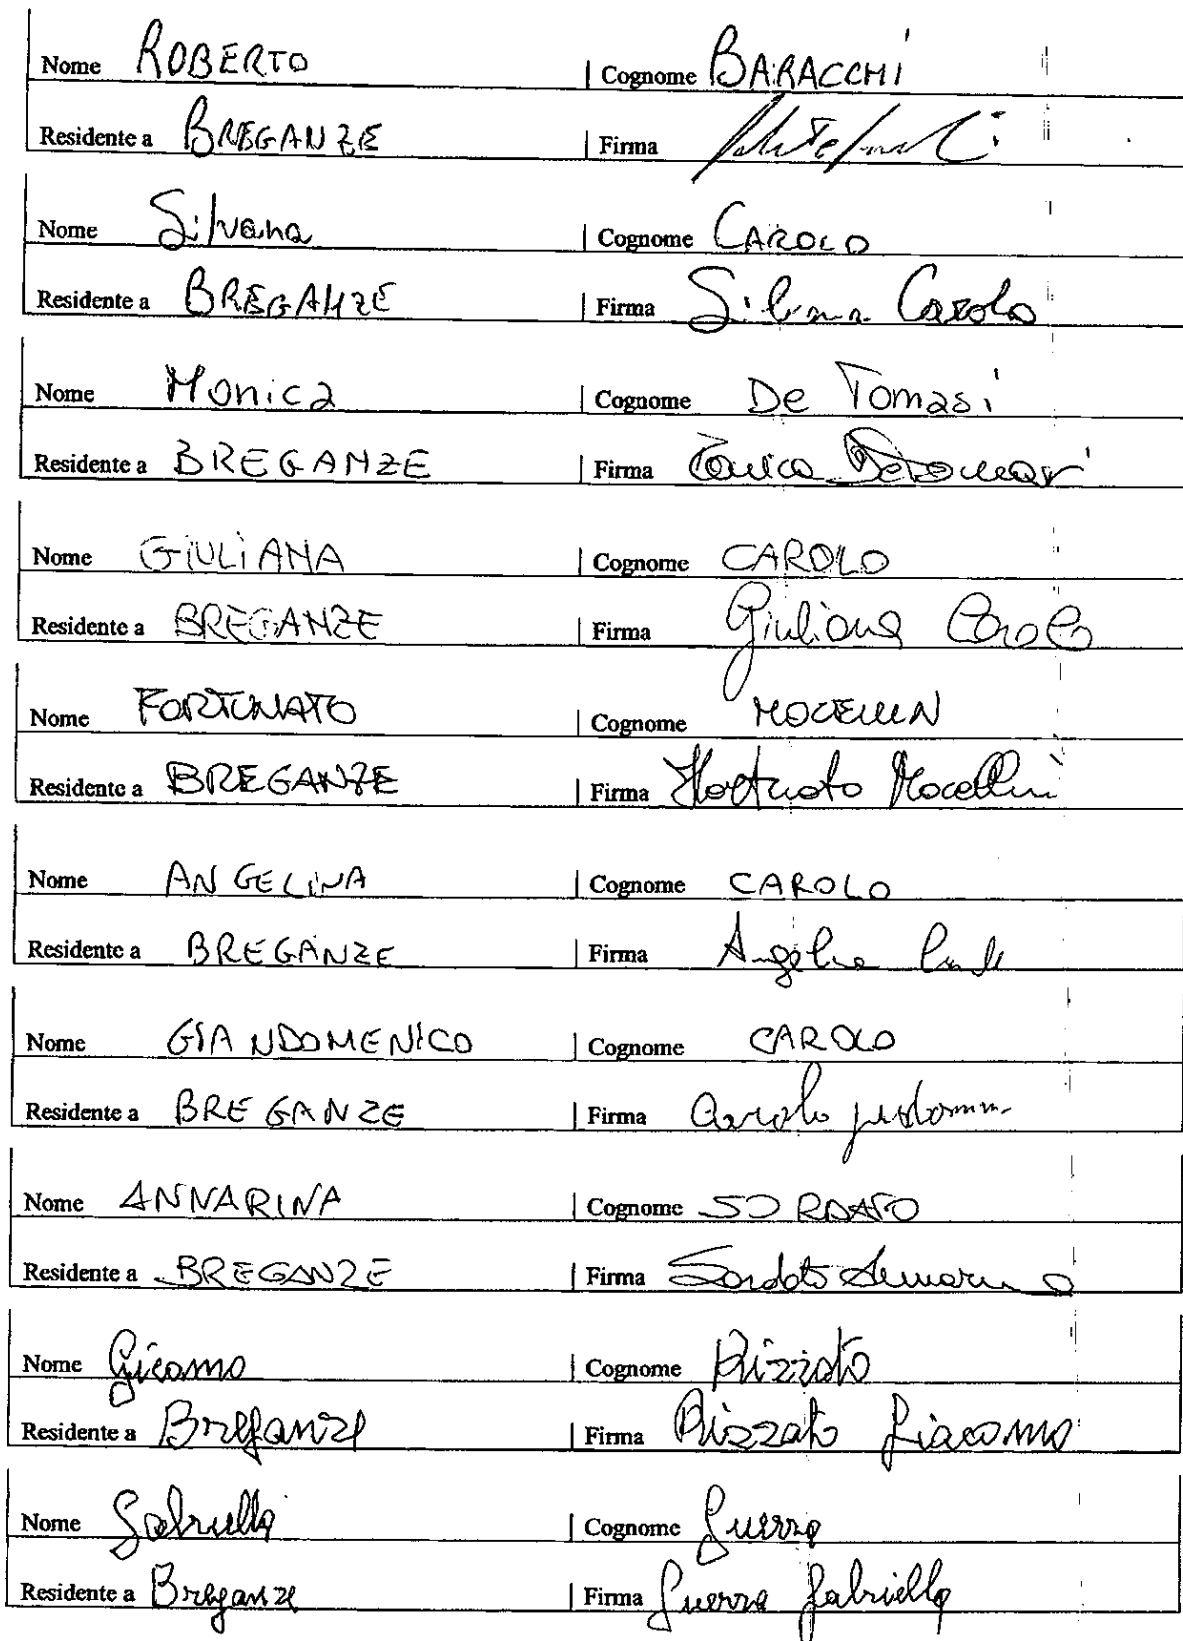 Nome ROBERTO | Cognome BARACCHI
Residente a BREGANZE | Firma
Nome Silvana | Cognome CAROLO
Residente a BREGANZE | Firma Silvana Carolo
Nome Monica | Cognome De Tomasi
Residente a BREGANZE | Firma Monica Detomasi
Nome GIULIANA | Cognome CAROLO
Residente a BREGANZE | Firma Giuliana Carolo
Nome FORTUNATO | Cognome MOCELLIN
Residente a BREGANZE | Firma Fortunato Mocellin
Nome ANGELINA | Cognome CAROLO
Residente a BREGANZE | Firma Angelina
Nome GIANDOMENICO | Cognome CAROLO
Residente a BREGANZE | Firma Carolo
Nome ANNARINA | Cognome SORDATO
Residente a BREGANZE | Firma Sordato Annarina
Nome Gicomo | Cognome Rizzato
Residente a Breganze | Firma Rizzato Giacomo
Nome Gabriella | Cognome Guerra
Residente a Breganze | Firma Guerra Gabriella